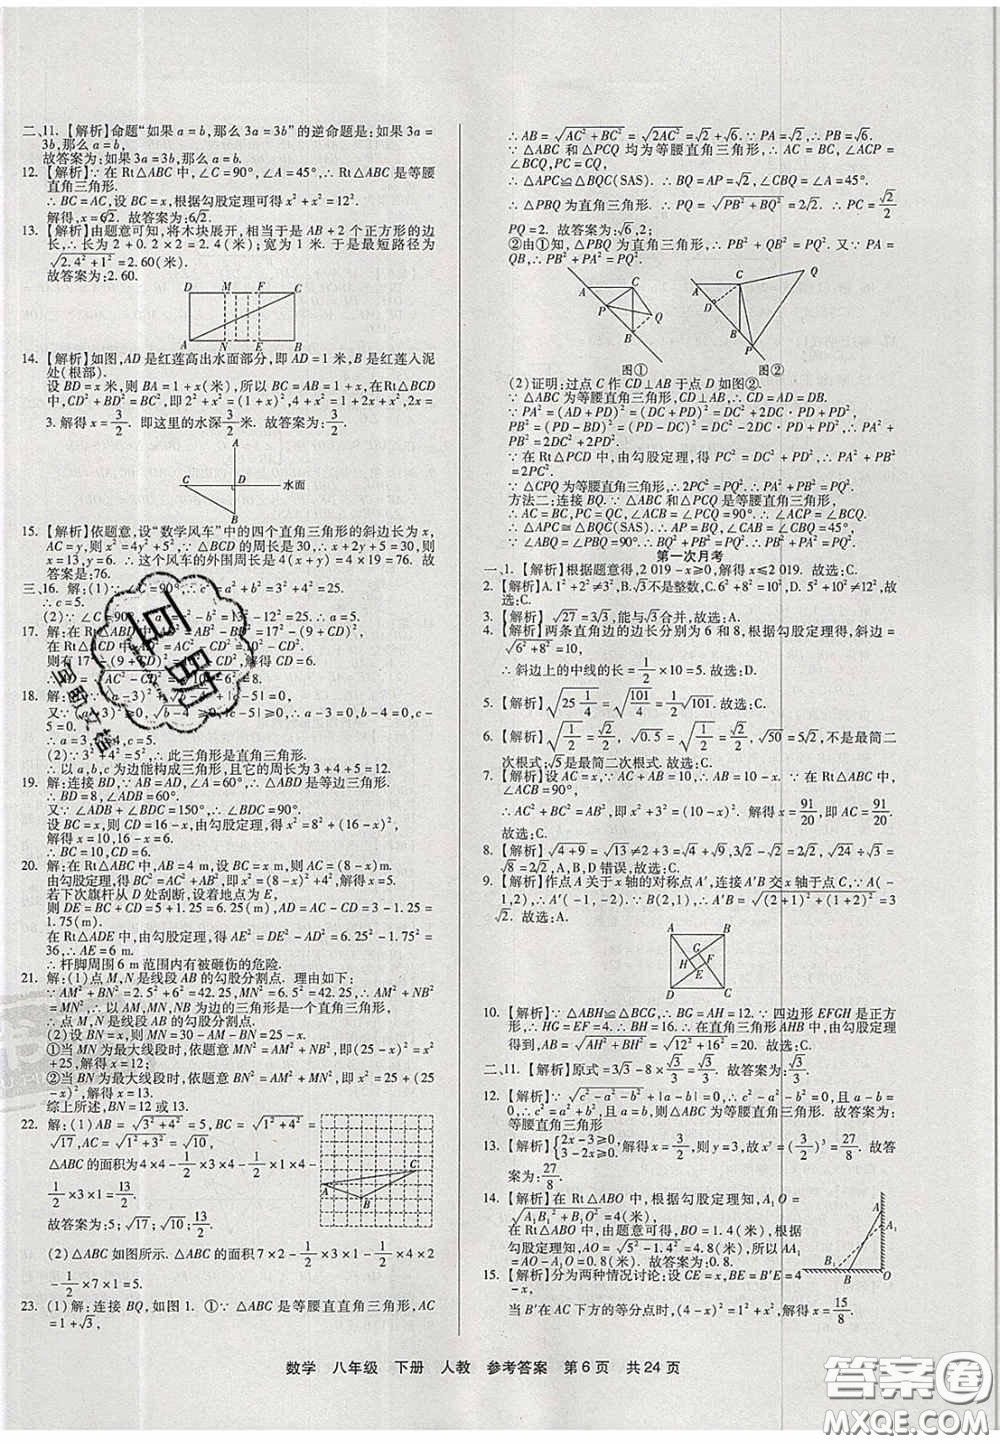 二、11. 【解析】命题“如果 a=b,那么 3a=3b”的逆命题是:如果 3a=
3b,那么 a=b.
故答案为:如果 3a=3b,那么 a=b.
12. 【解析】∵在 Rt△ABC 中,∠C=90°,∠A=45°,∴Rt△ABC 是等腰
直角三角形.
∴BC=AC,设 BC=x,根据勾股定理可得 x²+x²=12².
解得,x=6√2. 故答案为:6√2.
13. 【解析】由题意可知,将木块展开,相当于是 AB+2 个正方形的边
长,∴长为 2+0.2×2=2.4(米);宽为 1 米. 于是最短路径为
√(2.4²+1²)=2.60(米).
故答案为:2.60.
D M F C
A N E B
14. 【解析】如图,AD 是红莲高出水面部分,即 AD=1 米,B 是红莲入泥
处(根部).
设 BD=x 米,则 BA=1+x(米),所以 BC=AB=1+x(米),在 Rt△BCD
中,CD²+BD²=BC²,即 2²+x²=(1+x)²,4+x²=1+2x+x²,2x=
3. 解得 x=3/2. 即这里的水深3/2米. 故答案为:3/2.
A
C D 水面
B
15. 【解析】依题意,设“数学风车”中的四个直角三角形的斜边长为 x,
AC=y,则 x²=4y²+5²,∵△BCD 的周长是 30,∴x+2y+5=30,∴
x=13,y=6. ∴这个风车的外围周长是 4(x+y)=4×19=76. 故
答案是:76.
三、16. 解:(1)∵∠C=90°,∴c²=a²+b²=3²+4²=25.
∴c=5.
17. 解:在 Rt△ABD 中,AD²=AB²-BD²=17²-(9+CD)².
18. 解:(1)∵
∴a=3,b=4,c=5.
(2)∵3²+4²=5²,∴此三角形是直角三角形.
∴以 a,b,c 为边能构成三角形,且它的周长为 3+4+5=12.
19. 解:连接 BD,∵AB=AD,∠A=60°,∴△ABD 是等边三角形.
∴BD=8,∠ADB=60°.
又∵∠ADB+∠BDC=150°,∴∠BDC=90°.
设 BC=x,则 CD=16-x,由勾股定理得 x²=8²+(16-x)²,
解得 x=10.
∴BC=10,CD=6.
20. 解:在 Rt△ABC 中,AB=4 m,设 BC=x m,则 AC=(8-x)m.
由勾股定理,得 x²+4²=(8-x)²,∴x=3,∴AC=5 m.
若下次旗杆从 D 处刮断,设着地点为 E,
则 DE=BC+CD=5+1.25=6.25(m),AD=AC-CD=3-1.25=
1.75(m).
在 Rt△ADE 中,由勾股定理,得 AE²=DE²-AD²=6.25²-1.75²=
36. ∴AE=6 m.
∴杆脚周围 6 m 范围内有被砸伤的危险.
21. 解:(1)点 M,N 是线段 AB 的勾股分割点. 理由如下:
∵AM²+BN²=2.5²+6²=42.25,MN²=6.5²=42.25,∴AM²+BN²
=MN²,∴以 AM,MN,NB 为边的三角形是一个直角三角形,
∴点 M,N 是线段 AB 的勾股分割点.
(2)设 BN=x,则 MN=30-AM-BN=25-x,
①当 MN 为最大线段时,依题意 MN²=AM²+BN²,即(25-x)²=x²
+25,解得 x=12;
②当 BN 为最大线段时,依题意 BN²=AM²+MN²,即 x²=25+(25
-x)²,解得 x=13.
综上所述,BN=12 或 13.
22. 解:(1)AB=√(3²+4²)=5,BC=√(1²+4²)=
√17,AC=√(2²+3²)=√13,
△ABC 的面积为 4×4-1/2×3×4-1/2×1×4-
1/2×3×2=13/2.
故答案为:5;√17;√13;13/2.
(2)△ABC 如图所示. △ABC 的面积 7×2-1/2×3×1-1/2×4×2
-1/2×7×1=5.
A B C
23. (1)解:连接 BQ,如图 1. ①∵△ABC 是等腰直直角三角形,AC
=1+√3,
∴AB=√(AC²+BC²)=√(2AC²)=√2+√6. ∵PA=√2,∴PB=√6.
∵△ABC 和△PCQ 均为等腰直角三角形,∴AC=BC,∠ACP=
∠BCQ,PC=CQ.
∴△APC≌△BQC(SAS). ∴BQ=AP=√2,∠CBQ=∠A=45°.
∴△PBQ 为直角三角形. ∴PQ=√(PB²+BQ²)=2√2. ∴PC=√2/2
PQ=2. 故答案为:√6,2;
②由①知,△PBQ 为直角三角形,∴PB²+QB²=PQ². 又∵PA=
QB,∴PB²+PA²=PQ².
A C P Q B
图①
A D C Q B P
图②
(2)证明:过点 C 作 CD⊥AB 于点 D 如图②.
∵△ABC 为等腰直角三角形,CD⊥AB,∴CD=AD=DB.
∵PA²=(AD+PD)²=(DC+PD)²=DC²+2DC·PD+PD²,
PB²=(PD-BD)²=(PD-DC)²=DC²-2DC·PD+PD²,
∴PA²+PB²=2DC²+2PD²=2(DC²+PD²),∴PA²+PB²
=2PC².
∵在 Rt△PCD 中,由勾股定理,得 PC²=DC²+PD²,∴PA²+PB²
=2PC².
∵△CPQ 为等腰直角三角形,∴2PC²=PQ²,∴PA²+PB²=PQ².
方法二:连接 BQ. ∵△ABC 和△PCQ 是等腰直角三角形,
∴AC=BC,PC=CQ,∠ACB=∠PCQ=90°. ∴∠ACP=∠BCQ,
∴△ACP≌△BCQ(SAS),∴BQ=AP,∠A=∠CBQ=45°,
∴∠PBQ=90°. ∴BQ²+PB²=PQ²,∴PA²+PB²=PQ².
第一次月考
一、1. 【解析】根据题意得,2 019-x≥0,解得 x≤2 019. 故选:C.
2. 【解析】A.1²+2²≠3²,B.√3不是整数,C.6²+8²=10²,D.5²+12²≠9²,故
选:C.
3. 【解析】√27=3√3,能与√3合并,故选:A.
4. 【解析】两条直角边的边长分别为 6 和 8,根据勾股定理得,斜边=
√(6²+8²)=10,
∴斜边上的中线的长=1/2×10=5. 故选:C.
5. 【解析】√(25 1/4)=√(101/4)=1/2√101. 故选:C.
6. 【解析】√(1/2)=√2/2,√0.5=√(1/2)=√2/2,√50=5√2,不是最简二
次根式;√5是最简二次根式. 故选:C.
7. 【解析】设 AC=x,∵AC+AB=10,∴AB=10-x. ∵在 Rt△ABC 中,
∠ACB=90°,
∴AC²+BC²=AB²,即 x²+3²=(10-x)². 解得 x=91/20,即 AC=91/20.
故选:C.
8. 【解析】√(4+9)=√13≠2+3=√4+√9,√24÷√6=2=1/2√24÷1/2√6,
=√(4×9),A,B,D 错误,故选:C.
9. 【解析】作点 A 关于 x 轴的对称点 A′,连接 A′B 交 x 轴于点 C,∵A(-
1,2),∴A′(-1,-2). ∵B(2,1),∴A′B=√((1+2)²+(2+1)²)=3
√2. 故选:A.
A B H F G E D C
10. 【解析】∵△ABH≌△BCG,∴BG=AH=12. ∵四边形 EFGH 是正方
形,∴HG=EF=4. ∴BH=16. ∴在直角三角形 AHB 中,由勾股定理
得到:AB=√(AH²+BH²)=√(12²+16²)=20. 故选:C.
二、11. 【解析】原式=3√3-8×√3/3=√3/3. 故答案为:√3/3.
12. 【解析】∵√(c²-a²-b²)+|a-b|=0,∴c²-a²-b²=0,且 a-b=
0. ∴c²=a²+b²,且 a=b. 则△ABC 为等腰直角三角形. 故答案为:
等腰直角三角形
13. 【解析】{2x-3≥0, 3-2x≥0, 解得,x=3/2,则 y=3,故 x^y=(3/2)³=27/8. 故答
案为:27/8.
14. 【解析】在 Rt△ABO 中,根据勾股定理知,A₁O=
√(A₁B₁²-OB₁²)=4(米),
在 Rt△ABO 中,由题意可得,BO=1.4(米),根据
勾股定理知,AO=√(5²-1.4²)=4.8(米),所以 AA₁
=AO-A₁O=0.8(米). 故答案为:0.8.
A A₁ B₁ B O
15. 【解析】分为两种情况讨论:设 CE=x,BE=B′E=4
-x,
当 B′在 AC 下方的等分点时,(4-x)²=1²+x²,解得 x=15/8.
数学 八年级 下册 人教 参考答案 第 6 页 共 24 页
答案圈
MXQE.COM